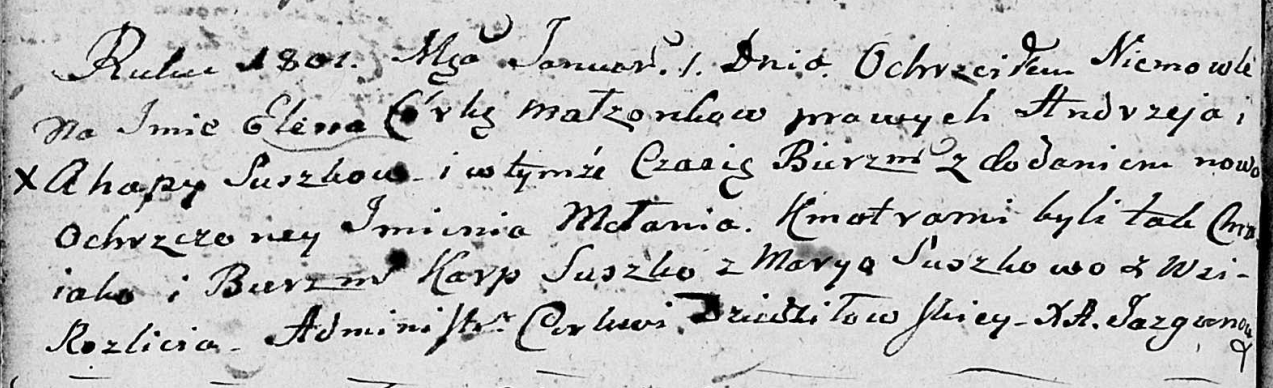 Roku 1801. Mca Januar. 1. Dnia. Ochrzciłem Niemowle
na Imie Elena Córkę małzonkow prawych Andrzeja i
X Ahapy Suszkow i w tymże Czasię Bierzm z dodaniem nowo
Ochrzczoney Imienia Mełania. Kmotrami byli tak Chrz.
iako i Bierzm Karp Suszko z Maryą Suszkowo z Wsi-
Rozlicia. Administr. Cerkwi Dziedziłowskiey. XA. Jazgunow